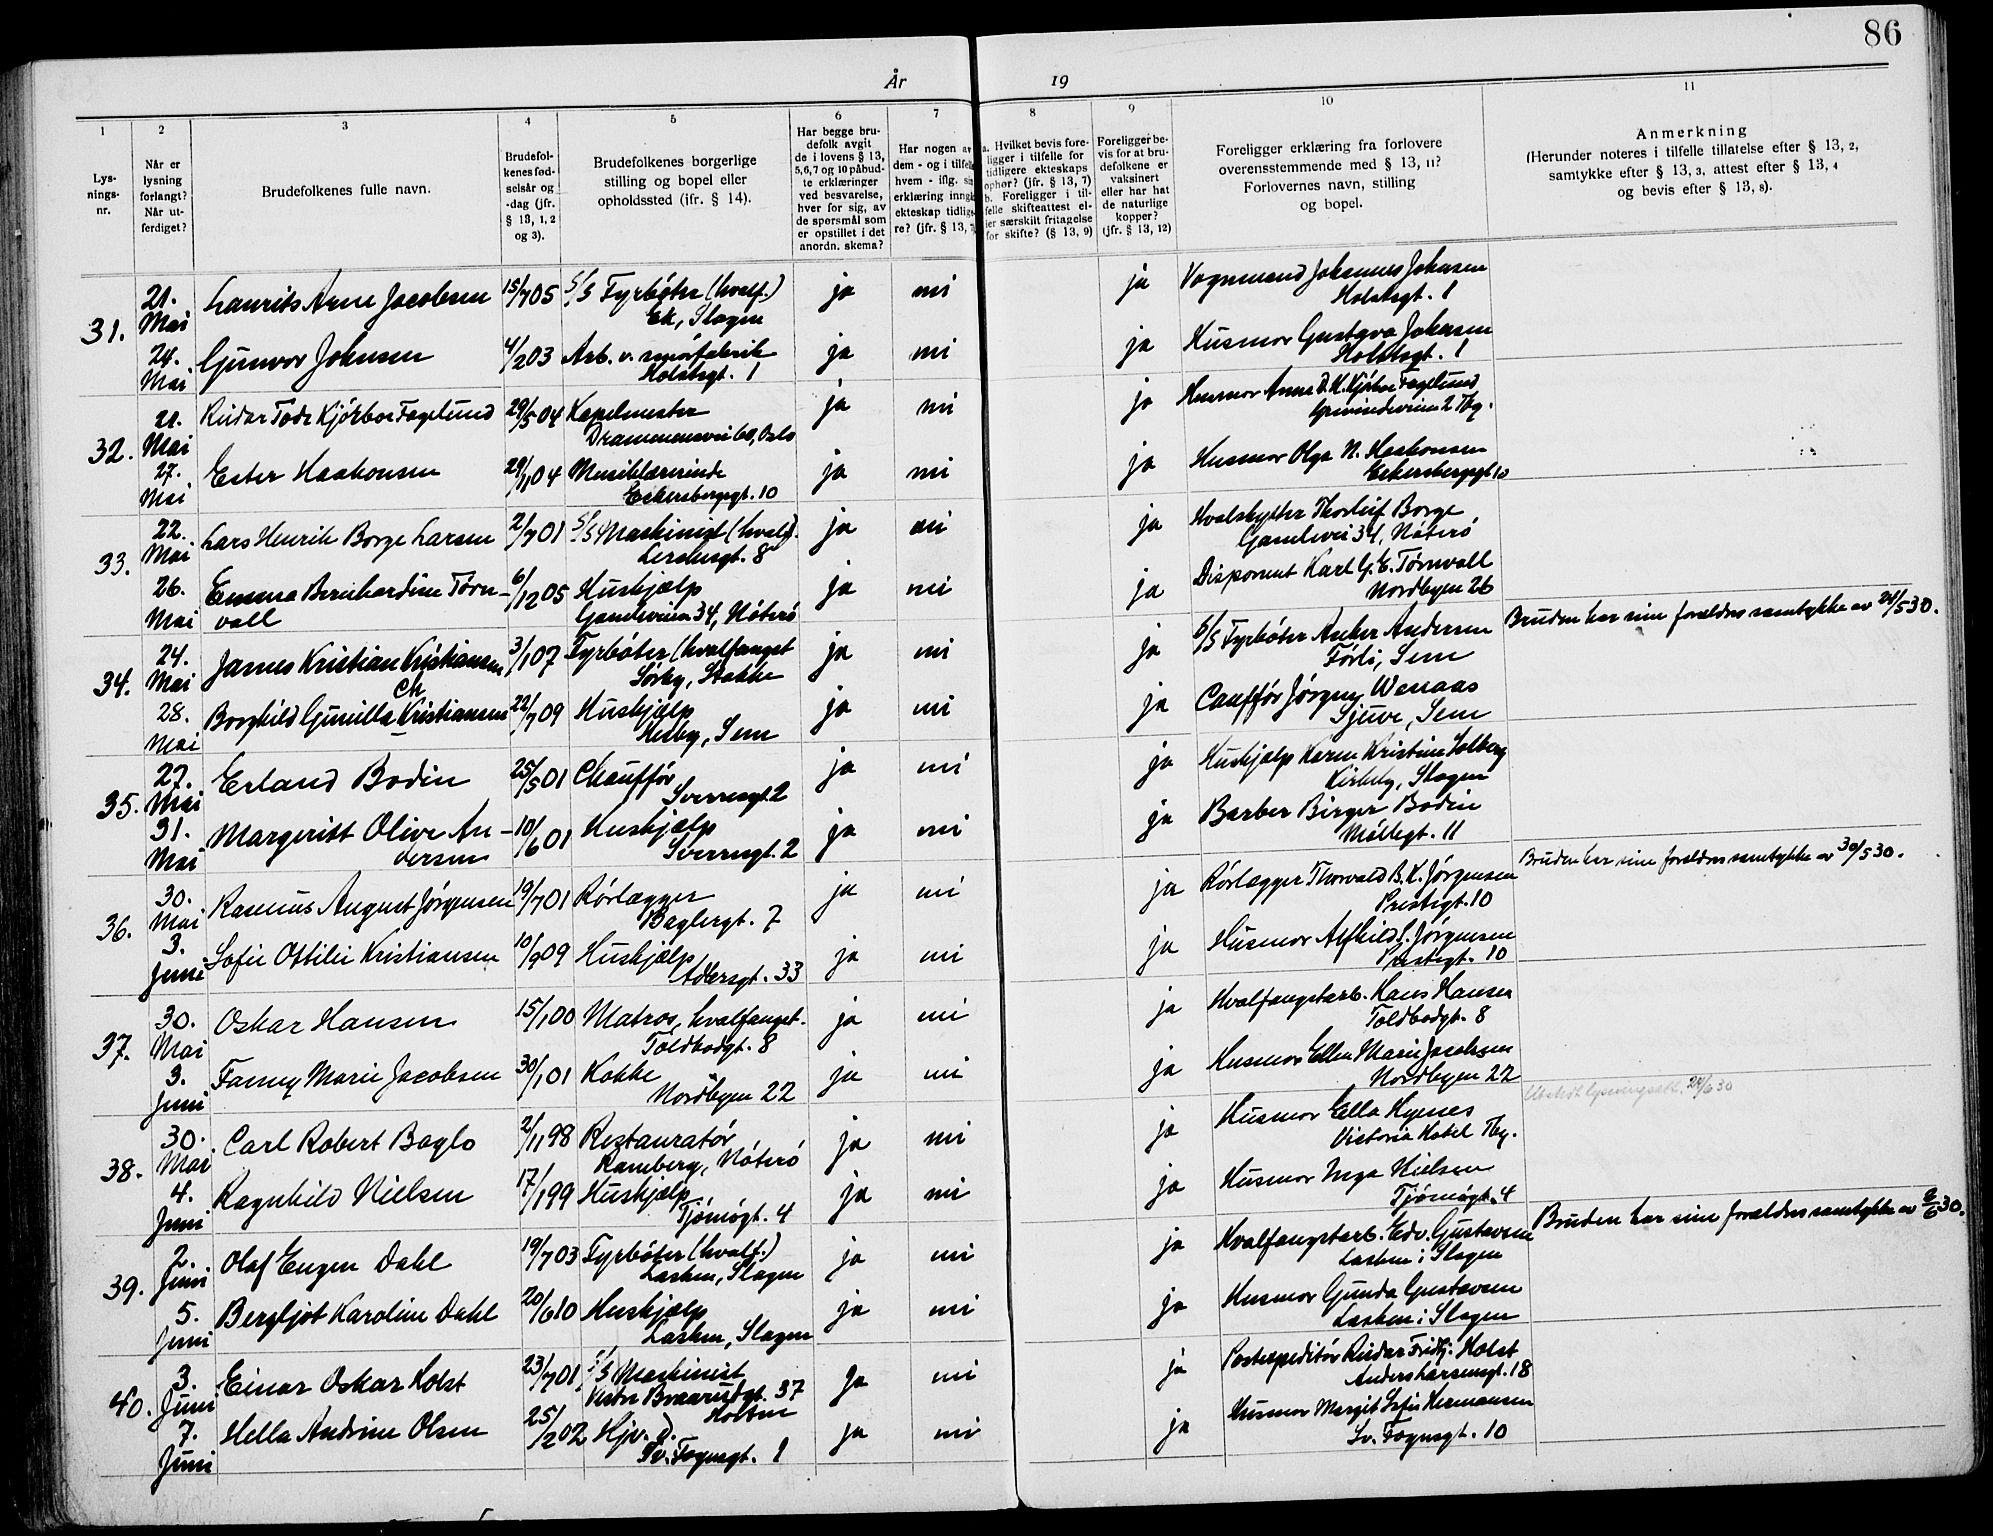 86
År 19
1 2 3 4 5 6 7 8 9 10 11
Lys-
nings-
nr.
Når er
lysning
forlangt?
Når ut-
ferdiget?
Brudefolkenes fulle navn.
Brudefol-
kenes fød-
selsår og
-dag (jfr.
§ 13, 1, 2
og 3).
Brudefolkenes borgerlige
stilling og bopel eller
opholdssted (jfr. § 14).
Har begge bru-
defolk avgit
de i lovens § 13,
5,6,7 og 10 påbud-
te erklæringer
ved besvarelse,
hver for sig, av
de spørsmål som
er opstillet i det
anordn. skema?
Har nogen av
dem - og i tilfelle
hvem - iflg.
erklæring inngå
ekteskap tidlige-
re? (jfr. § 13, 7
a. Hvilket bevis fore-
ligger i tilfelle for
tidligere ekteskaps
ophør? (jfr. § 13, 7)
b. Foreligger i til-
felle skifteattest el-
ler særskilt fritagelse
for skifte? (§ 13, 9)
Foreligger be-
vis for at bru-
defolkene er
vaksinert
eller har hat
de naturlige
kopper?
(jfr. § 13, 12)
Foreligger erklæring fra forlovere
overensstemmende med § 13, 11?
Forlovernes navn, stilling
og bopel.
Anmerkning
(Herunder noteres i tilfelle tillatelse efter § 13, 2,
samtykke efter § 13, 3, attest efter § 13, 4
og bevis efter § 13, 8).
31. 21. Mai Laurits Arne Jacobsen 15/7 05 S/S Fyrbøter (hvalf.) ja nei ja Vognmand Johannes Johnsen
Ek, Slagen Holstsgt. 1
24. Mai Gunvor Johnsen 4/2 03 Arb. v. smørfabrik ja nei ja Husmor Gustava Johnsen
Holstsgt. 1 Holstsgt. 1
32. 21. Mai Reidar Tode Kjørboe Fagelund 29/5 04 Kapelmester ja nei ja Husmor Anna D. K. Kjørboe Fagelund
Drammensvei 60, Oslo Grevindeveien 2 Tbg.
27. Mai Ester Haakonsen 29/11 04 Musiklærerinde ja nei ja Husmor Olga N. Haakonsen
Eckersbergsgt. 10 Eckersbergsgt. 10
33. 22. Mai Lars Henrik Borge Larsen 2/7 01 S/S Maskinist (hvalf). ja nei ja Hvalskytter Thorleif Borge
Lerchesgt. 8 Gamlevei 34, Nøterø
26. Mai Emma Bernhardine Törn- 6/12 05 Hushjælp ja nei ja Disponent Karl G. E. Törnvall
vall Gamleveien 34, Nøterø Nordbyen 26
34. 24. Mai James Kristian Kristiansen 3/1 07 Fyrbøter (hvalfanget ja nei ja S/S Fyrbøter Anker Andersen Bruden har sine forældres samtykke av 24/5 30.
Sørby, Stokke Førli, Sem
Ch
28. Mai Borghild Gunilla Kristiansen 22/7 09 Hushjælp ja nei ja Cauffør Jørgen Wenaas
Hesby, Sem Sjuve, Sem
35. 27. Mai Erland Bodin 25/5 01 Chauffør ja nei ja Hushjælp Karen Kristine Solberg
Sverresgt. 2 Kirkeby, Slagen
31. Mai Margeritt Olive An- 10/6 01 Hushjælp ja nei ja Barber Birger Bodin
dersen Sverresgt. 2 Møllegt. 11
36. 30. Mai Rasmus August Jørgensen 19/7 01 Rørlægger ja nei ja Rørlægger Thorvald B. K. Jørgensen Bruden har sine forældres samtykke av 30/5 30.
Baglergt. 7 Prestegt. 10
3. Juni Sofie Ottilie Kristiansen 10/9 09 Hushjælp ja nei ja Husmor Alfhild G. Jørgensen
Adlersgt. 33 Prestegt. 10
37. 30. Mai Oskar Hansen 15/1 00 Matros, hvalfanget. ja nei ja Hvalfangstarb. Hans Hansen
Toldbodgt. 8 Toldbodgt. 8
3. Juni Fanny Marie Jacobsen 30/1 01 Kokke ja nei ja Husmor Ellen Marie Jacobsen
Nordbyen 22 Nordbyen 22
38. 30. Mai Carl Robert Baglo 2/11 98 Restauratør ja nei ja Husmor Ella Hynes Utstedt lysningsatt. 24/6 30
Ramberg, Nøterø Victoria Hotel Tbg.
4. Juni Ragnhild Nielsen 17/1 99 Hushjælp ja nei ja Husmor Inga Nielsen
Tjømøgt. 4 Tjømøgt. 4
39. 2. Juni Olaf Eugen Dahl 19/7 03 Fyrbøter (hvalf.) ja nei ja Hvalfangstarb. Edv. Gustavsen Bruden har sine forældres samtykke av 2/6 30.
Lasken, Slagen Lasken i Slagen
5. Juni Bergljot Karoline Dahl 20/6 10 Hushjælp ja nei ja Husmor Gunda Gustavsen
Lasken, Slagen Lasken i Slagen
40. 3. Juni Einar Oskar Holst 23/7 01 S/S Maskinist ja nei ja Postexpeditør Reidar Fridtj. Holst
Vestre Braarudgt. 37 Anders Larsensgt. 18
Horten
7. Juni Hella Andrine Olsen 25/2 02 Hjv. D. ja nei ja Husmor Margit Sofie Hermansen
Sv. Foynsgt. 1 Sv. Foynsgt. 10